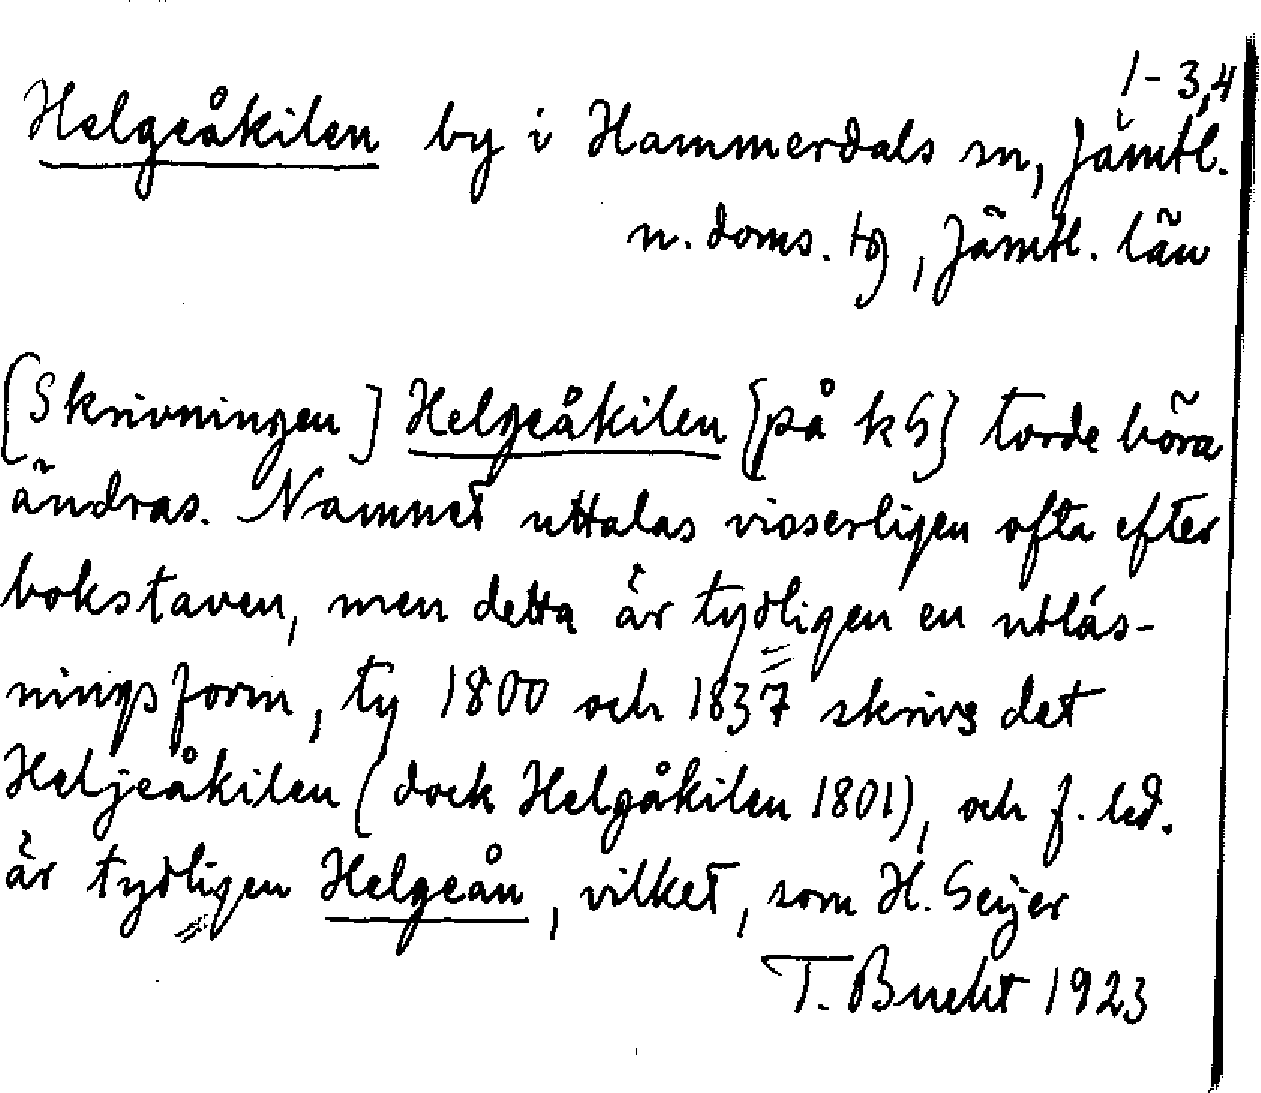 1-3,4
Helgeåkilen by i Hammerdals sn, Jämtl.
n. doms. tg, Jämtl. län
[Skrivningen] Helgeåkilen {på kG} torde böra
ändras. Namnet uttalas visserligen ofta efter
bokstaven, men detta är tydligen en utläs-
ningsform, ty 1800 och 1837 skrivs det
Heljeåkilen (dock Helgåkilen 1801), och f. led.
är tydligen Helgeån, vilket, som H. Geijer
T. Bucht 1923